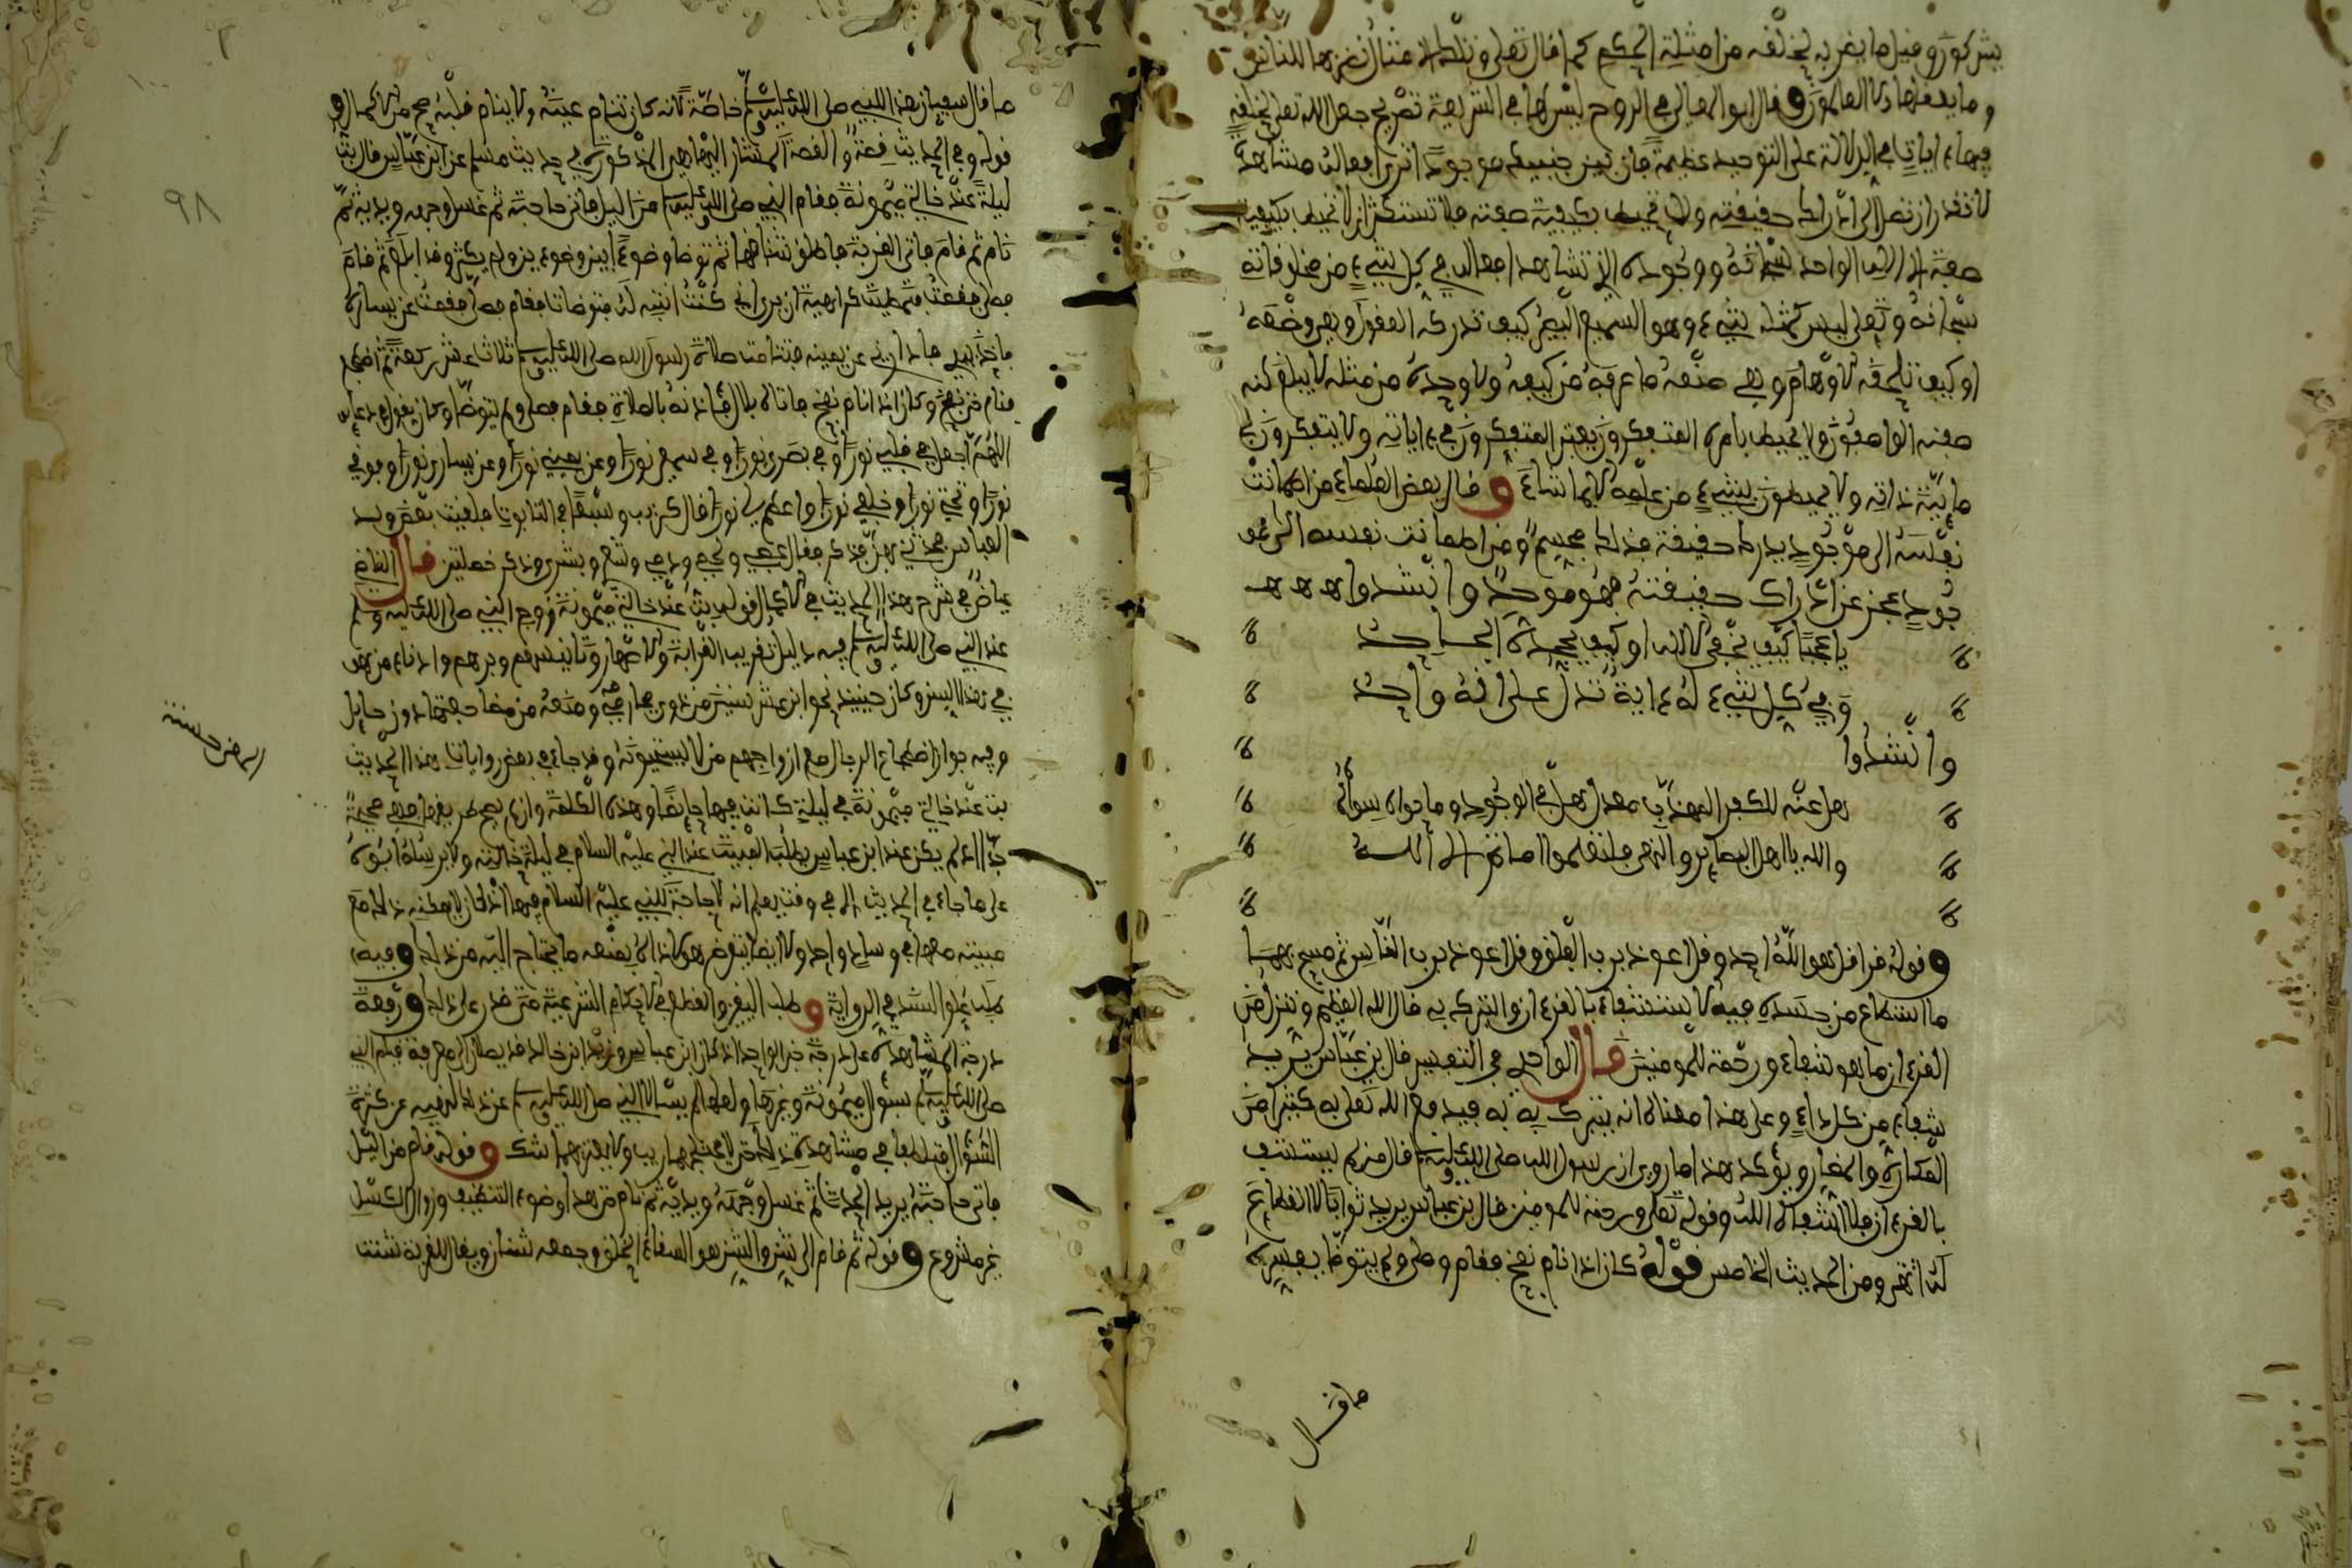 يشركون وفيل ما يضر به لخلقه من امثلة الحكم كما قال تعلى وتلك الامثال نضربها للناس
وما يعقلها الا العالمون وقال ابو المعالي في الروح ليس لها في الشريعة تصريح جعل الله تعلى لخلقه
فيها ءايات في الدلالة على التوحيد عظيمة فان بين جنبيك موجودا ترى افعاله مشاهدة
لا تقدر ان تصل الى ادراك حقيقته ولا تحيط بكيفية صفته فلا تستنكر ان لا تحيط بكيفية
صفة الاله الواحد سبحانه ووجوده الذي تشاهد افعاله في كل شيء من مخلوقاته
سبحانه وتعلى ليس كمثله شيء وهو السميع البصير كيف تدركه العقول وهي وضعه
او كيف تلحقه الاوهام وهي صنعه ما عرفه من كيفه ولا وحده من مثله لا يبلغ كنه
صفته الواصفون ولا يحيط بامره المتفكرون يعتبر المتفكرون في ءاياته ولا يتفكرون في
مائية ذاته ولا يحيطون بشيء من علمه الا بما شاء وقال بعض العلماء من اطمانت
نفسه الى موجود يدرك حقيقة فذلك مجسم ومن اطمانت نفسه الى مو
جود عجز عن ادراك حقيقته فهو موحد وانشدوا
يا عجبا كيف يخفى الاله او كيف يجحده الجاحد
وفي كل شيء له ءاية تدل على انه واحد
وانشدوا
هل عنه للكفر المهذب معدل هل في الوجود وما حواه سواه
والله يا اهل البصاير والنهى ما انقلموا ما ثم الا الله
وقوله قرا قل هو الله احد وقل اعوذ برب الفلق وقل اعوذ برب الناس ثم مسح بهما
ما استطاع من جسده فيه الاستشفاء بالقرءان والتبرك به قال الله العظيم وننزل من
القرءان ما هو شفاء ورحمة للمومنين قال الواحدي في التفسير قال بن عباس يريد
شفاء من كل داء وعلى هذا معناه انه يتبرك به فيدفع الله تعلى به كثيرا من
المكاره والمضار ويؤكد هذا ما روي ان رسول الله صلى الله عليه وسلم قال من لم يستشف
بالقرءان فلا شفاه الله وقوله تعلى ورحمة للمومنين قال بن عباس يريد ثوابا لا انقطاع
له انتهى ومن الحديث الخامس قوله كان اذا نام نفخ فقام وصلى ولم يتوضا يفسره
ما قال
ما قال سفيان هذا للنبي صلى الله عليه وسلم خاصة لانه كان تنام عينه ولا ينام قلبه صح من الاكمال
قوله وفي الحديث قصة والقصة المشار اليها هي المذكورة في حديث مسلم عن ابن عباس قال بت
ليلة عند خالتي ميمونة فقام النبي صلى الله عليه وسلم من الليل فاتى حاجته ثم غسل وجهه ويديه ثم
نام ثم قام فاتى القربة فاطلق شناقها ثم توضا وضوءا بين وضوءين ولم يكثر وقد ابلغ ثم قام
فصلى فقمت فتمطيت كراهية ان يرى اني كنت انتبه له فتوضات فقام فصلى فقمت عن يساره
فاخذ بيدي فادارني عن يمينه فتتامت صلاة رسول الله صلى الله عليه وسلم ثلاث عشر ركعة ثم اضطجع
فنام حتى نفخ وكان اذا نام نفخ فاتاه بلال فئاذنه بالصلاة فقام فصلى ولم يتوضا وكان يقول في دعايه
اللهم اجعل في قلبي نورا وفي بصري نورا وفي سمعي نورا وعن يميني نورا وعن يساري نورا وفوقي
نورا وتحتي نورا وخلفي نورا واعظم لي نورا قال كريب وسبعا في التابوت فلقيت بعض ولد
العباس فحدثني بهن فذكر فقال عصبي ولحمي ودمي وشعري وبشري وذكر خصلتين قال القاضي
عياض في شرح هذا الحديث في الاكمال قوله بت عند خالتي ميمونة زوج النبي صلى الله عليه وسلم
عند النبي صلى الله عليه وسلم فيه دليل تقريب القرابة والاصهار وتانيسهم وبرهم وادناء من هو
في هذا السن وكان حينيذ نحو ابن عشر سنين من ذوي محارمه ومنعه من مضاجعتها دون حايل
وفيه جواز اضطجاع الرجال مع ازواجهم من لا يستحيونه وقد جاء في بعض روايات هذا الحديث
بت عند خالتي ميمونة في ليلة كانت فيها حايضا وهذه الكلمة وان لم يصح طريقها فهي حسنة
جدا اذ لم يكن عند ابن عباس يطلب المبيت عند النبي عليه السلام في ليلة خالته ولا يرسله ابوه
على ما جاء في الحديث الا في وقت يعلم انه لا حاجة للنبي عليه السلام فيها اذ كان لا يمكنه ذلك مع
مبيته معها في وساد واحد ولا ايضا يتعرض هو لاذاه بمنعه ما يحتاج اليه من ذلك وفيه
طلب علو السند في الرواية وطلب اليقين والقطع في الاحكام الشرعية متى قدر على ذلك ورفعه
درجة المشاهدة على درجة خبر الواحد
صلى الله عليه وسلم بسؤال ميمونة وغيرها ولعلها لم يسالا النبي صلى الله عليه وسلم عن ذلك لنهيه عن كثرة
السؤال
وقوله قام من الليل
فاتى حاجته يريد الحدث ثم غسل وجهه ويديه ثم نام هذا وضوء التنظيف وزوال الكسل
غير مشروع وقوله ثم قام الى شن والشن هو السقاء الخلق وجمعه شنان ويقال للقربة شنت
٩٨